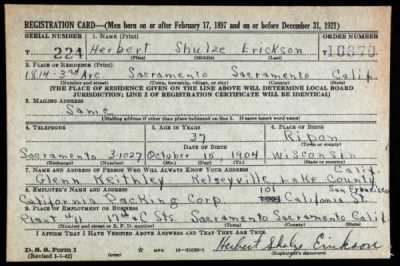 REGISTRATION CARD—(Men born on or after February 17, 1897 and on or before December 31, 1921)
SERIAL NUMBER 1. NAME (Print) ORDER NUMBER
T 224 Herbert Shulze Erickson 10370
(First) (Middle) (Last)
2. PLACE OF RESIDENCE (Print)
1814-3rd Ave. Sacramento Sacramento Calif.
(Number and street) (Town, township, village, or city) (County) (State)
[THE PLACE OF RESIDENCE GIVEN ON THE LINE ABOVE WILL DETERMINE LOCAL BOARD
JURISDICTION; LINE 2 OF REGISTRATION CERTIFICATE WILL BE IDENTICAL]
3. MAILING ADDRESS
Same
[Mailing address if other than place indicated on line 2. If same insert word same]
4. TELEPHONE 5. AGE IN YEARS 6. PLACE OF BIRTH
37 Ripon
DATE OF BIRTH (Town or county)
Sacramento 3-1027 October 15 1904 Wisconsin
(Exchange) (Number) (Mo.) (Day) (Yr.) (State or country)
7. NAME AND ADDRESS OF PERSON WHO WILL ALWAYS KNOW YOUR ADDRESS Calif.
Glenn Keithley Kelseyville Lake County
8. EMPLOYER'S NAME AND ADDRESS 101 San Francisco
California Packing Corp. California St.
9. PLACE OF EMPLOYMENT OR BUSINESS
Plant #11 17th & C Sts. Sacramento Sacramento Calif.
(Number and street or R. F. D. number) (Town) (County) (State)
I AFFIRM THAT I HAVE VERIFIED ABOVE ANSWERS AND THAT THEY ARE TRUE.
D. S. S. Form 1 GPO
(Revised 1-1-42) Herbert Shulze Erickson
(Registrant's signature)